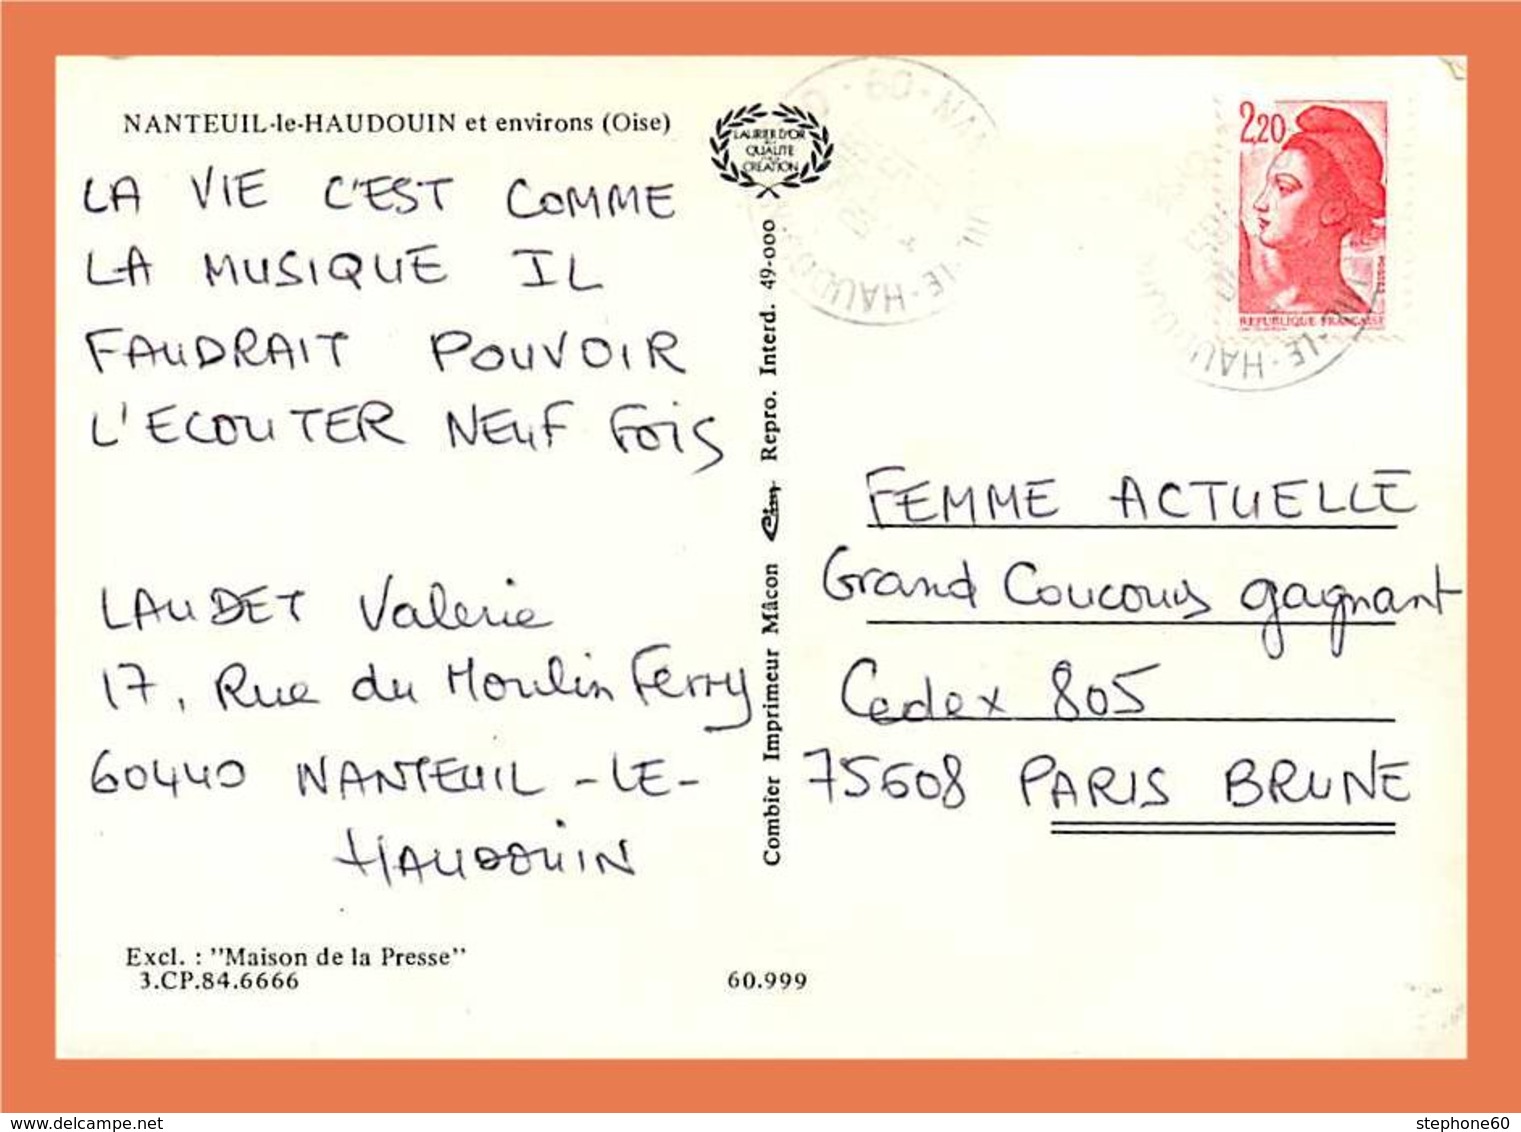 NANTEUIL-le-HAUDOUIN et environs (Oise)
LAURIER D'OR
QUALITE
CREATION
LA VIE C'EST COMME
LA MUSIQUE IL
FAUDRAIT POUVOIR
L'ECOUTER NEUF FOIS
LAUDET Valerie
17, Rue du Moulin Ferry
60440 NANTEUIL-LE-
HAUDOUIN
Excl. : "Maison de la Presse"
3.CP.84.6666
60.999
Combier Imprimeur Mâcon Cim Repro. Interd. 49-000
2,20
REPUBLIQUE FRANÇAISE
POSTES
60 - NAN
IL-LE-HAUDOUIN
LE-HAUDOUIN
FEMME ACTUELLE
Grand Concours gagnant
Cedex 805
75608 PARIS BRUNE
stephone60